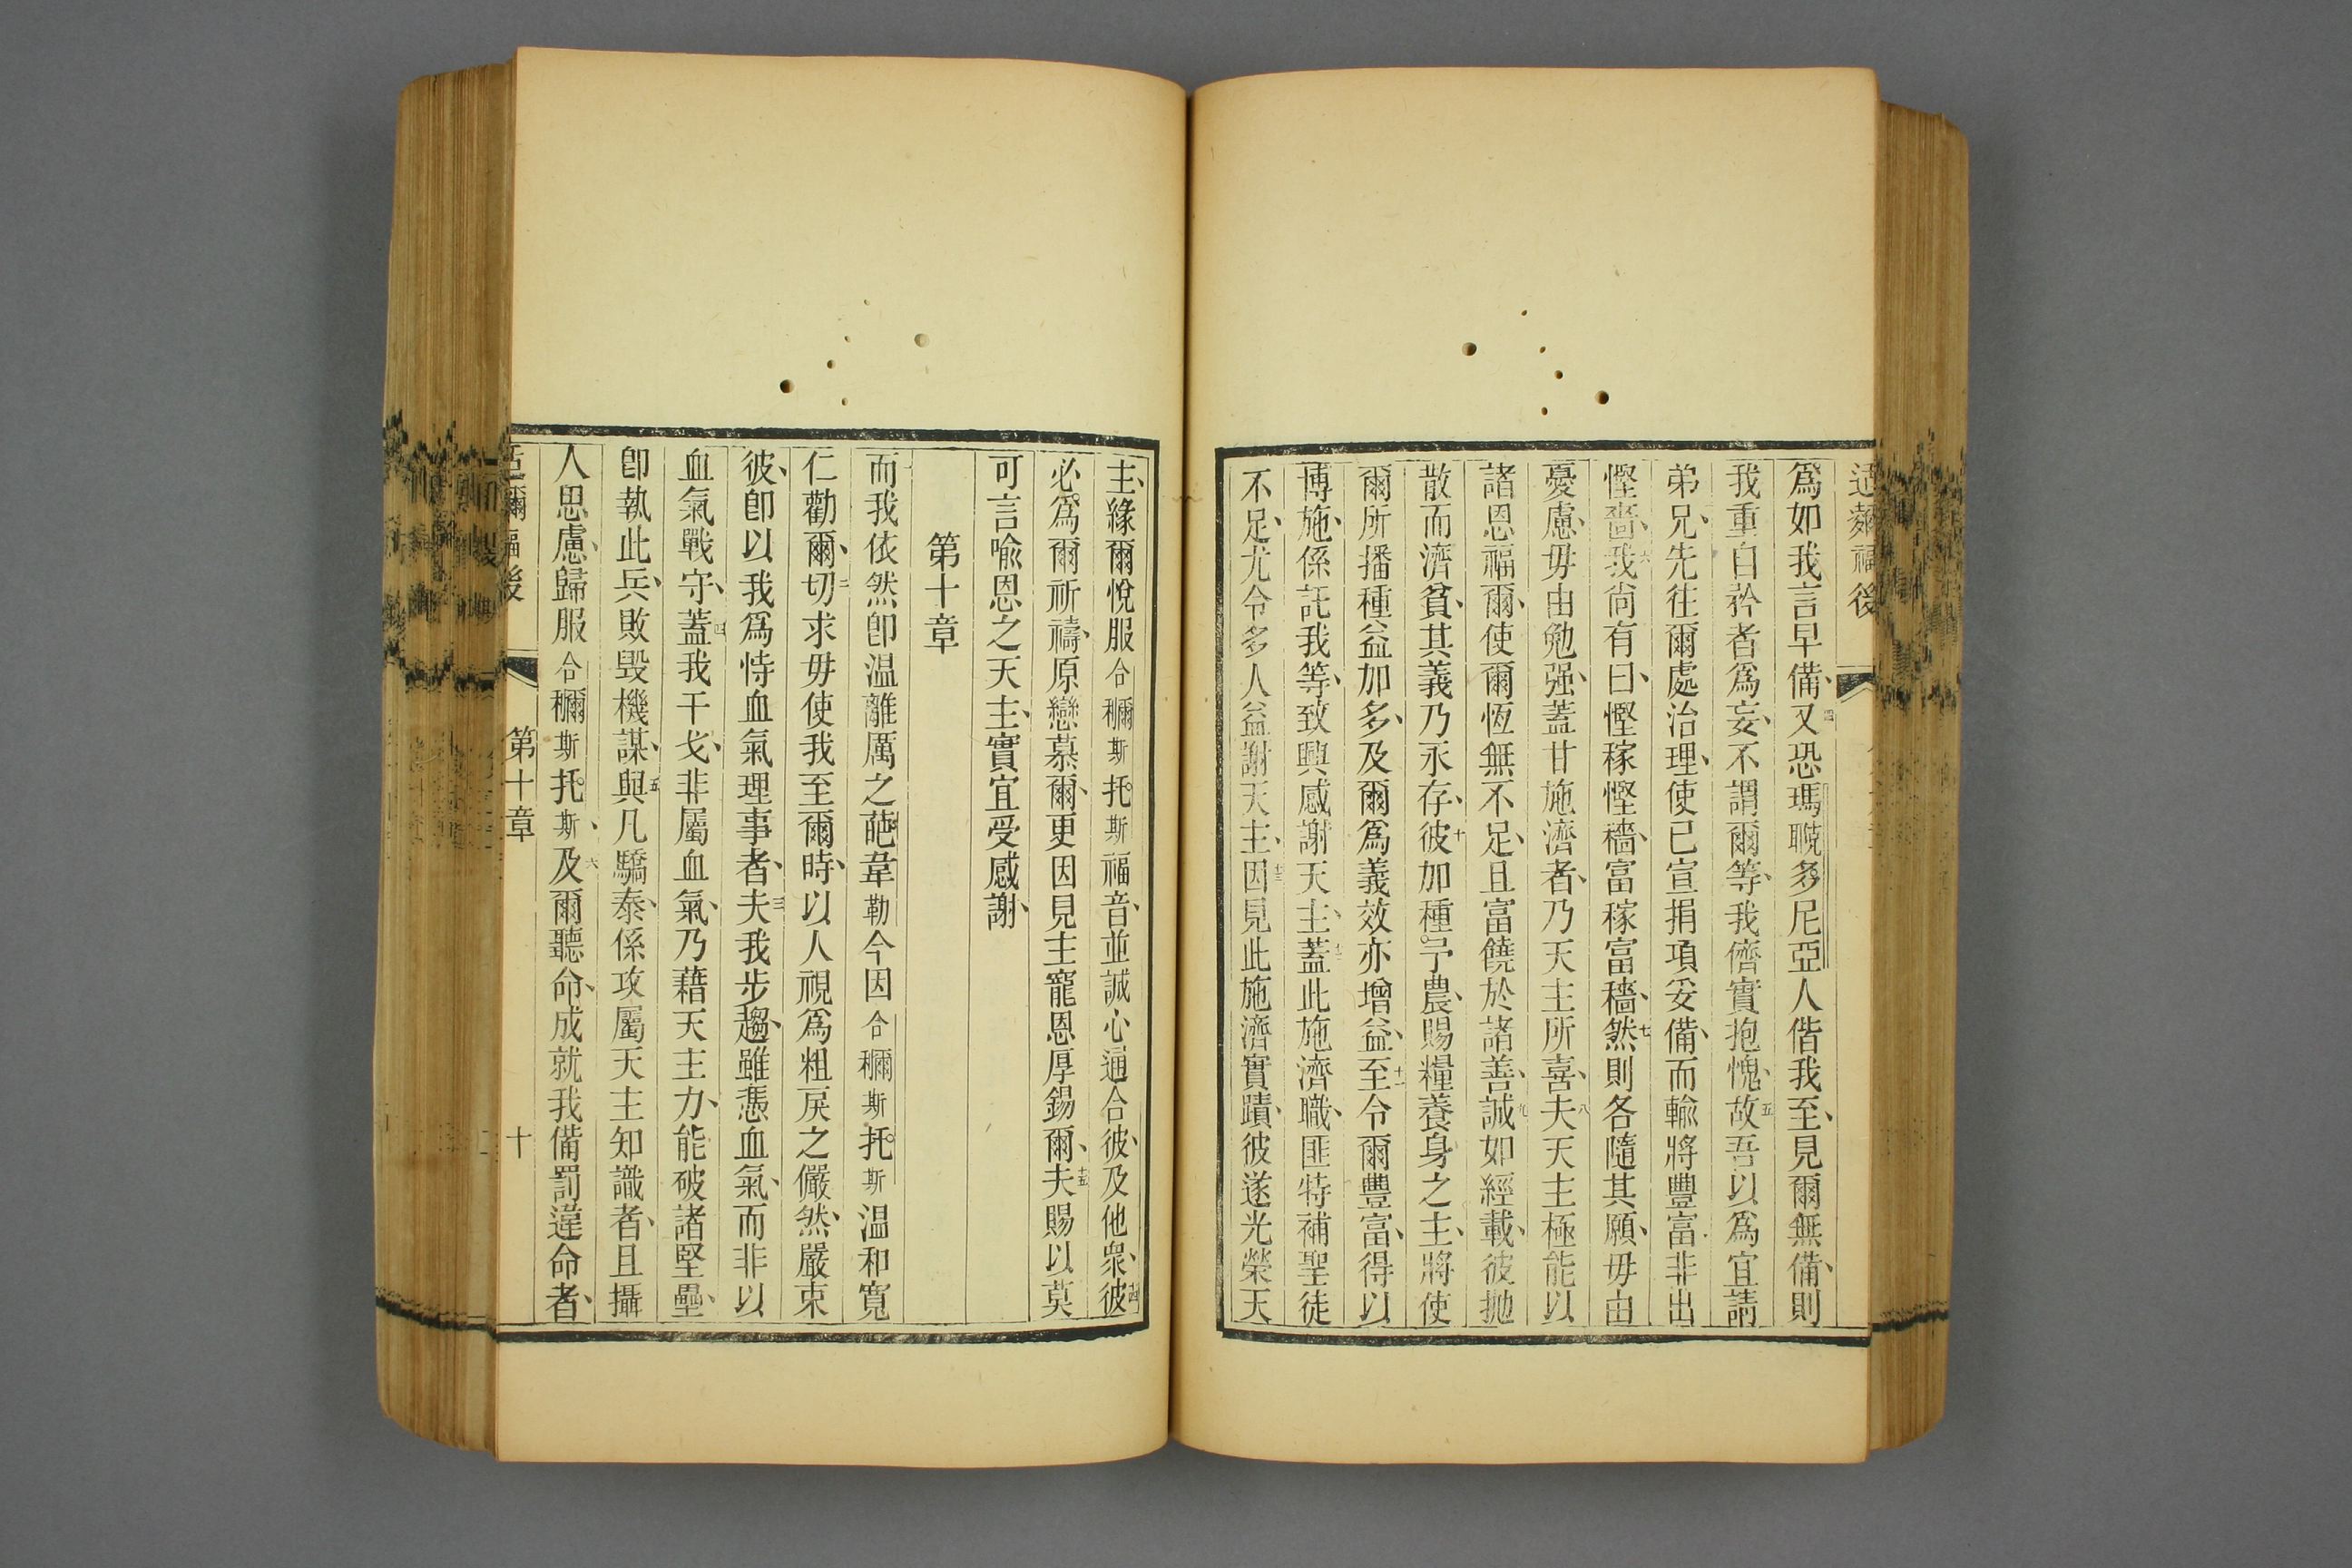 爲如我言早備、四又恐瑪𦗟多尼亞人偕我至、見爾無備、則
我重自矜者爲妄、不謂爾等、我儕實抱愧、五故吾以爲宜請
弟兄、先往爾處治理、使已宣捐項妥備、而輸將豐富、非出
慳嗇、六我尙有曰、慳稼慳穡、富稼富穡、七然則各隨其願、毋由
憂慮、毋由勉强、蓋甘施濟者、乃天主所喜、八夫天主極能以
諸恩福爾、使爾恆無不足、且富饒於諸善、九誠如經載、彼抛
散而濟貧、其義乃永存、十彼加種予農、賜糧養身之主、將使
爾所播種益加多、及爾爲義效亦增益、十一至令爾豐富、得以
博施、係託我等、致興感謝天主、十二蓋此施濟職、匪特補聖徒
不足、尤令多人益謝天主、十三因見此施濟實蹟、彼遂光榮天
主、緣爾悅服合穪斯托斯福音、並誠心通合彼、及他衆、十四彼
必爲爾祈禱、原戀慕爾、更因見主寵恩厚錫爾、十五夫賜以莫
可言喻恩之天主、實宜受感謝、
第十章
而我依然卽温離厲之葩韋勒今因合穪斯托斯温和寬
仁勸爾、二切求毋使我至爾時、以人視爲粗戾之儼然、嚴束
彼、卽以我爲恃血氣理事者、三夫我步趨、雖憑血氣、而非以
血氣戰守、四蓋我干戈、非屬血氣、乃藉天主力、能破諸堅壘、
卽執此兵、敗毀機謀、五與凡驕泰、係攻屬天主知識者、且攝
人思慮、歸服合穪斯托斯、六及爾聽命、成就我備罰違命者、
爾福後
第十章
十